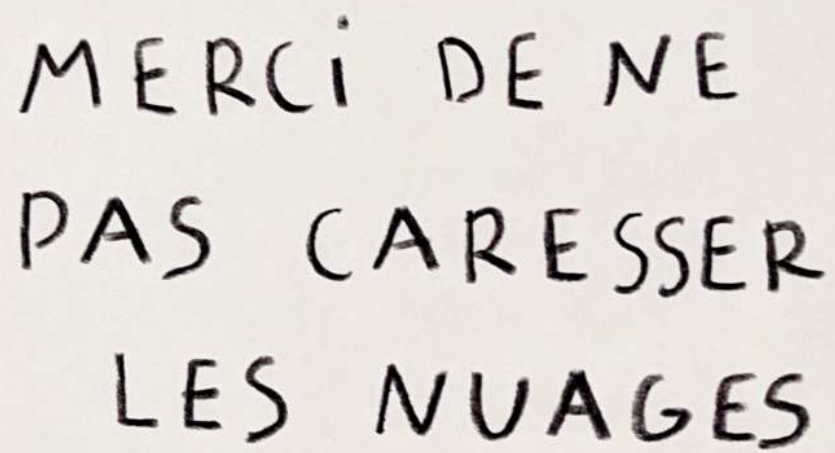 MERCi DE NE
PAS CARESSER
LES NUAGES